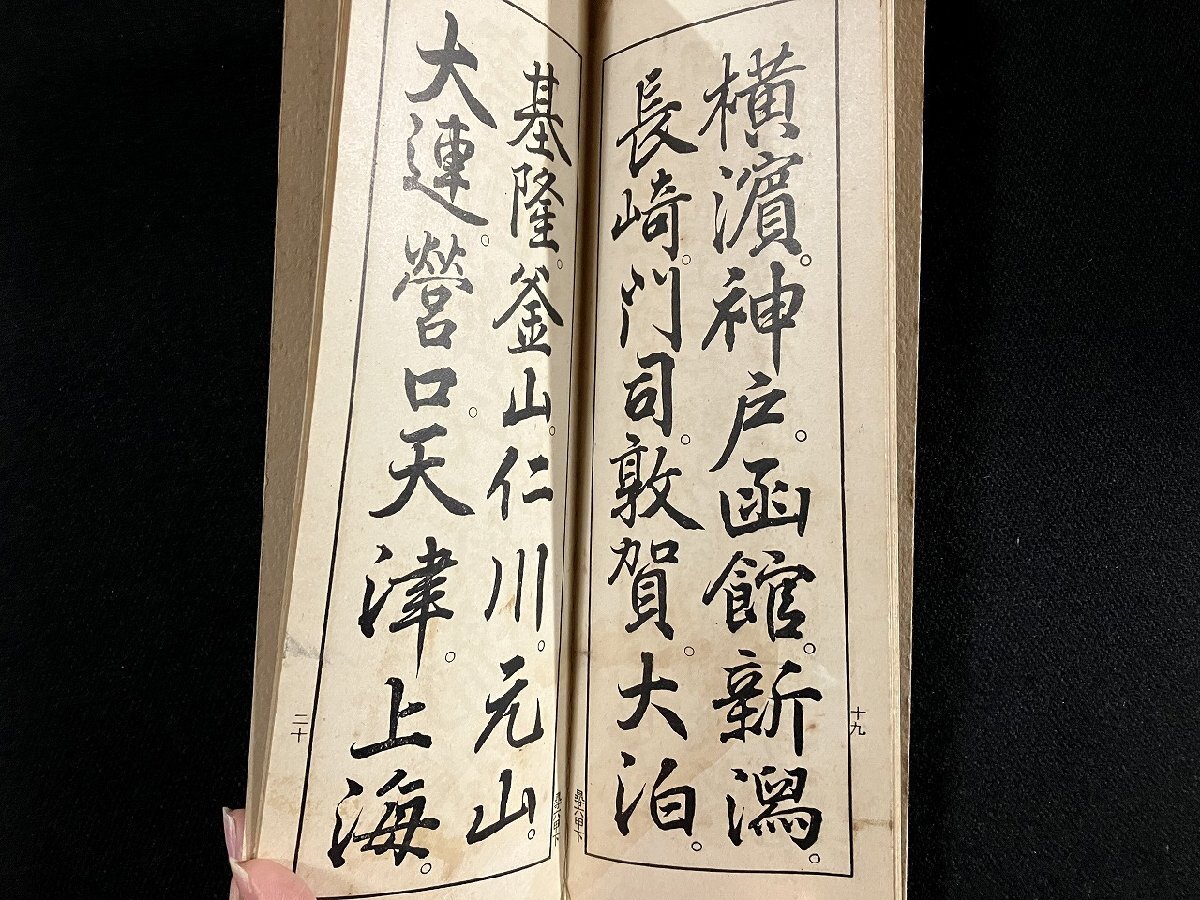 横濱。神戸。函館。新潟。
長崎。門司。敦賀。大泊。
十九
基隆。釜山。仁川。元山。
大連。營口。天津。上海。
二十